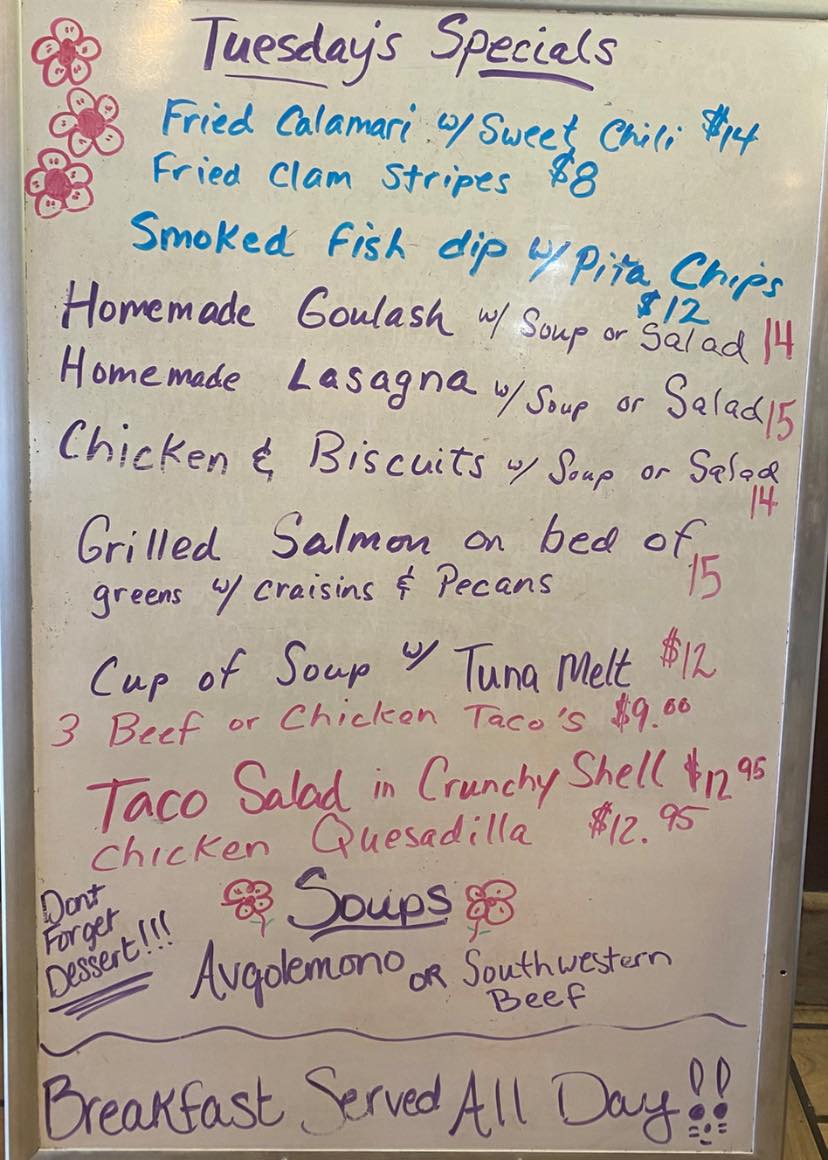 Tuesday's Specials
Fried Calamari w/ Sweet Chili $14
Fried Clam Stripes $8
Smoked fish dip w/ Pita Chips
$12
Homemade Goulash w/ Soup or Salad 14
Homemade Lasagna w/ Soup or Salad 15
Chicken & Biscuits w/ Soup or Salad
14
Grilled Salmon on bed of
greens w/ craisins & Pecans 15
Cup of Soup w/ Tuna Melt $12
3 Beef or Chicken Taco's $9.00
Taco Salad in Crunchy Shell $12 95
Chicken Quesadilla $12.95
Soups
Dont
Forget
Dessert!!!
Avgolemono OR Southwestern
Beef
Breakfast Served All Day!!